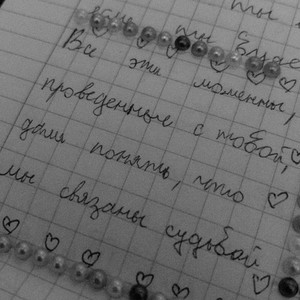 ты
если ты буде
Все эти моменты,
проведенные с тобой,
дали понять, что
мы связаны судьбой